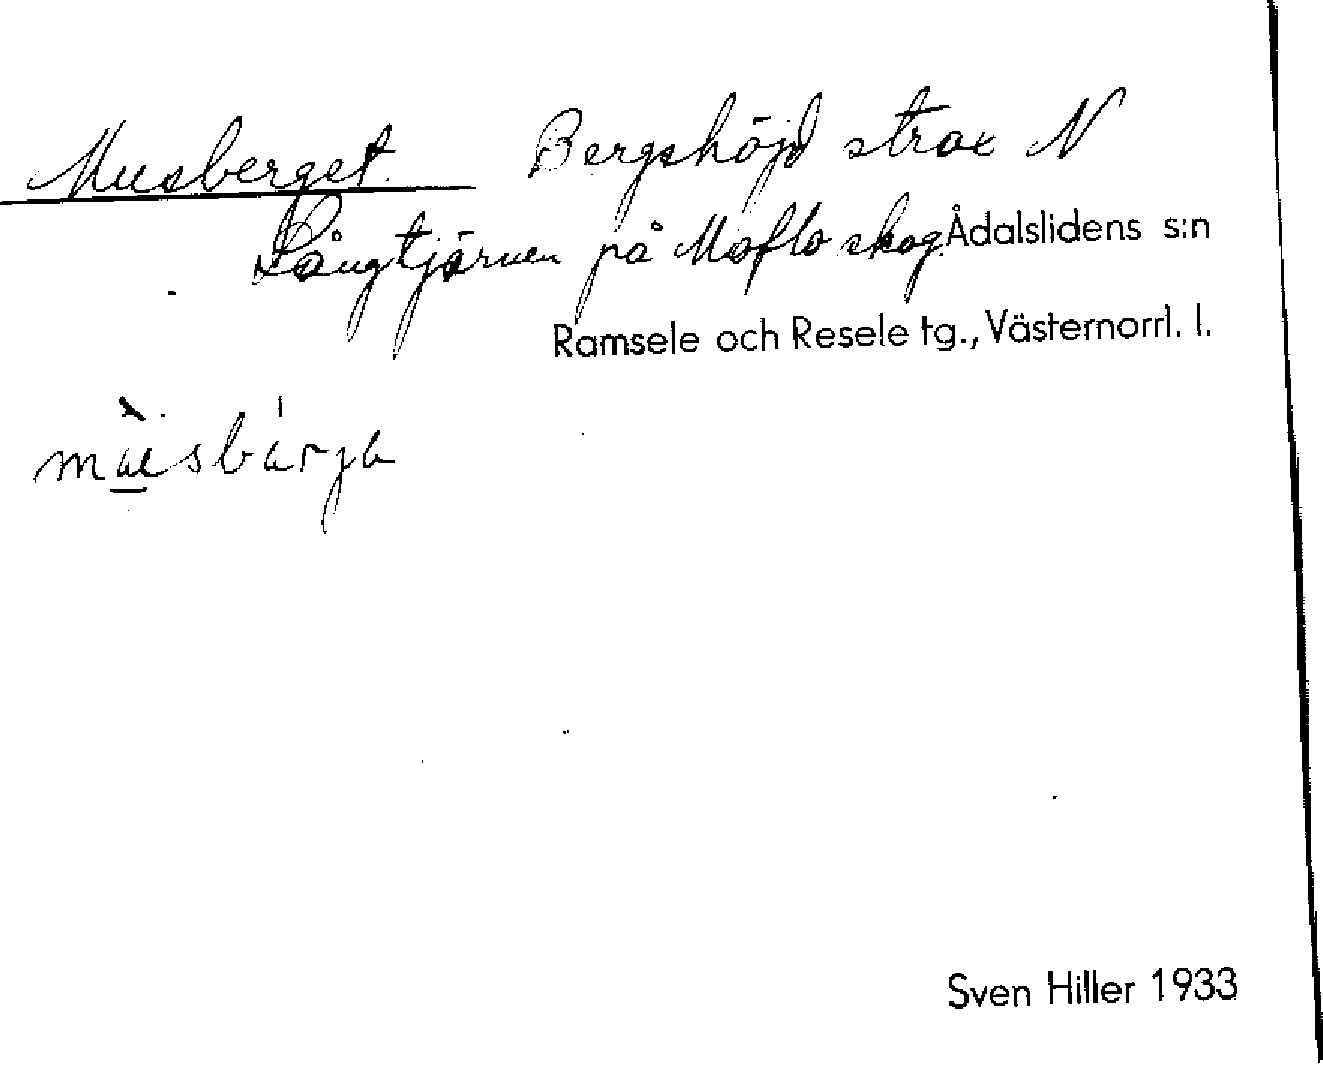 Musberget. Bergshöjd strax N
Långtjärnen på Moflo skog. Ådalslidens s:n
Ramsele och Resele tg., Västernorrl. l.
Sven Hiller 1933